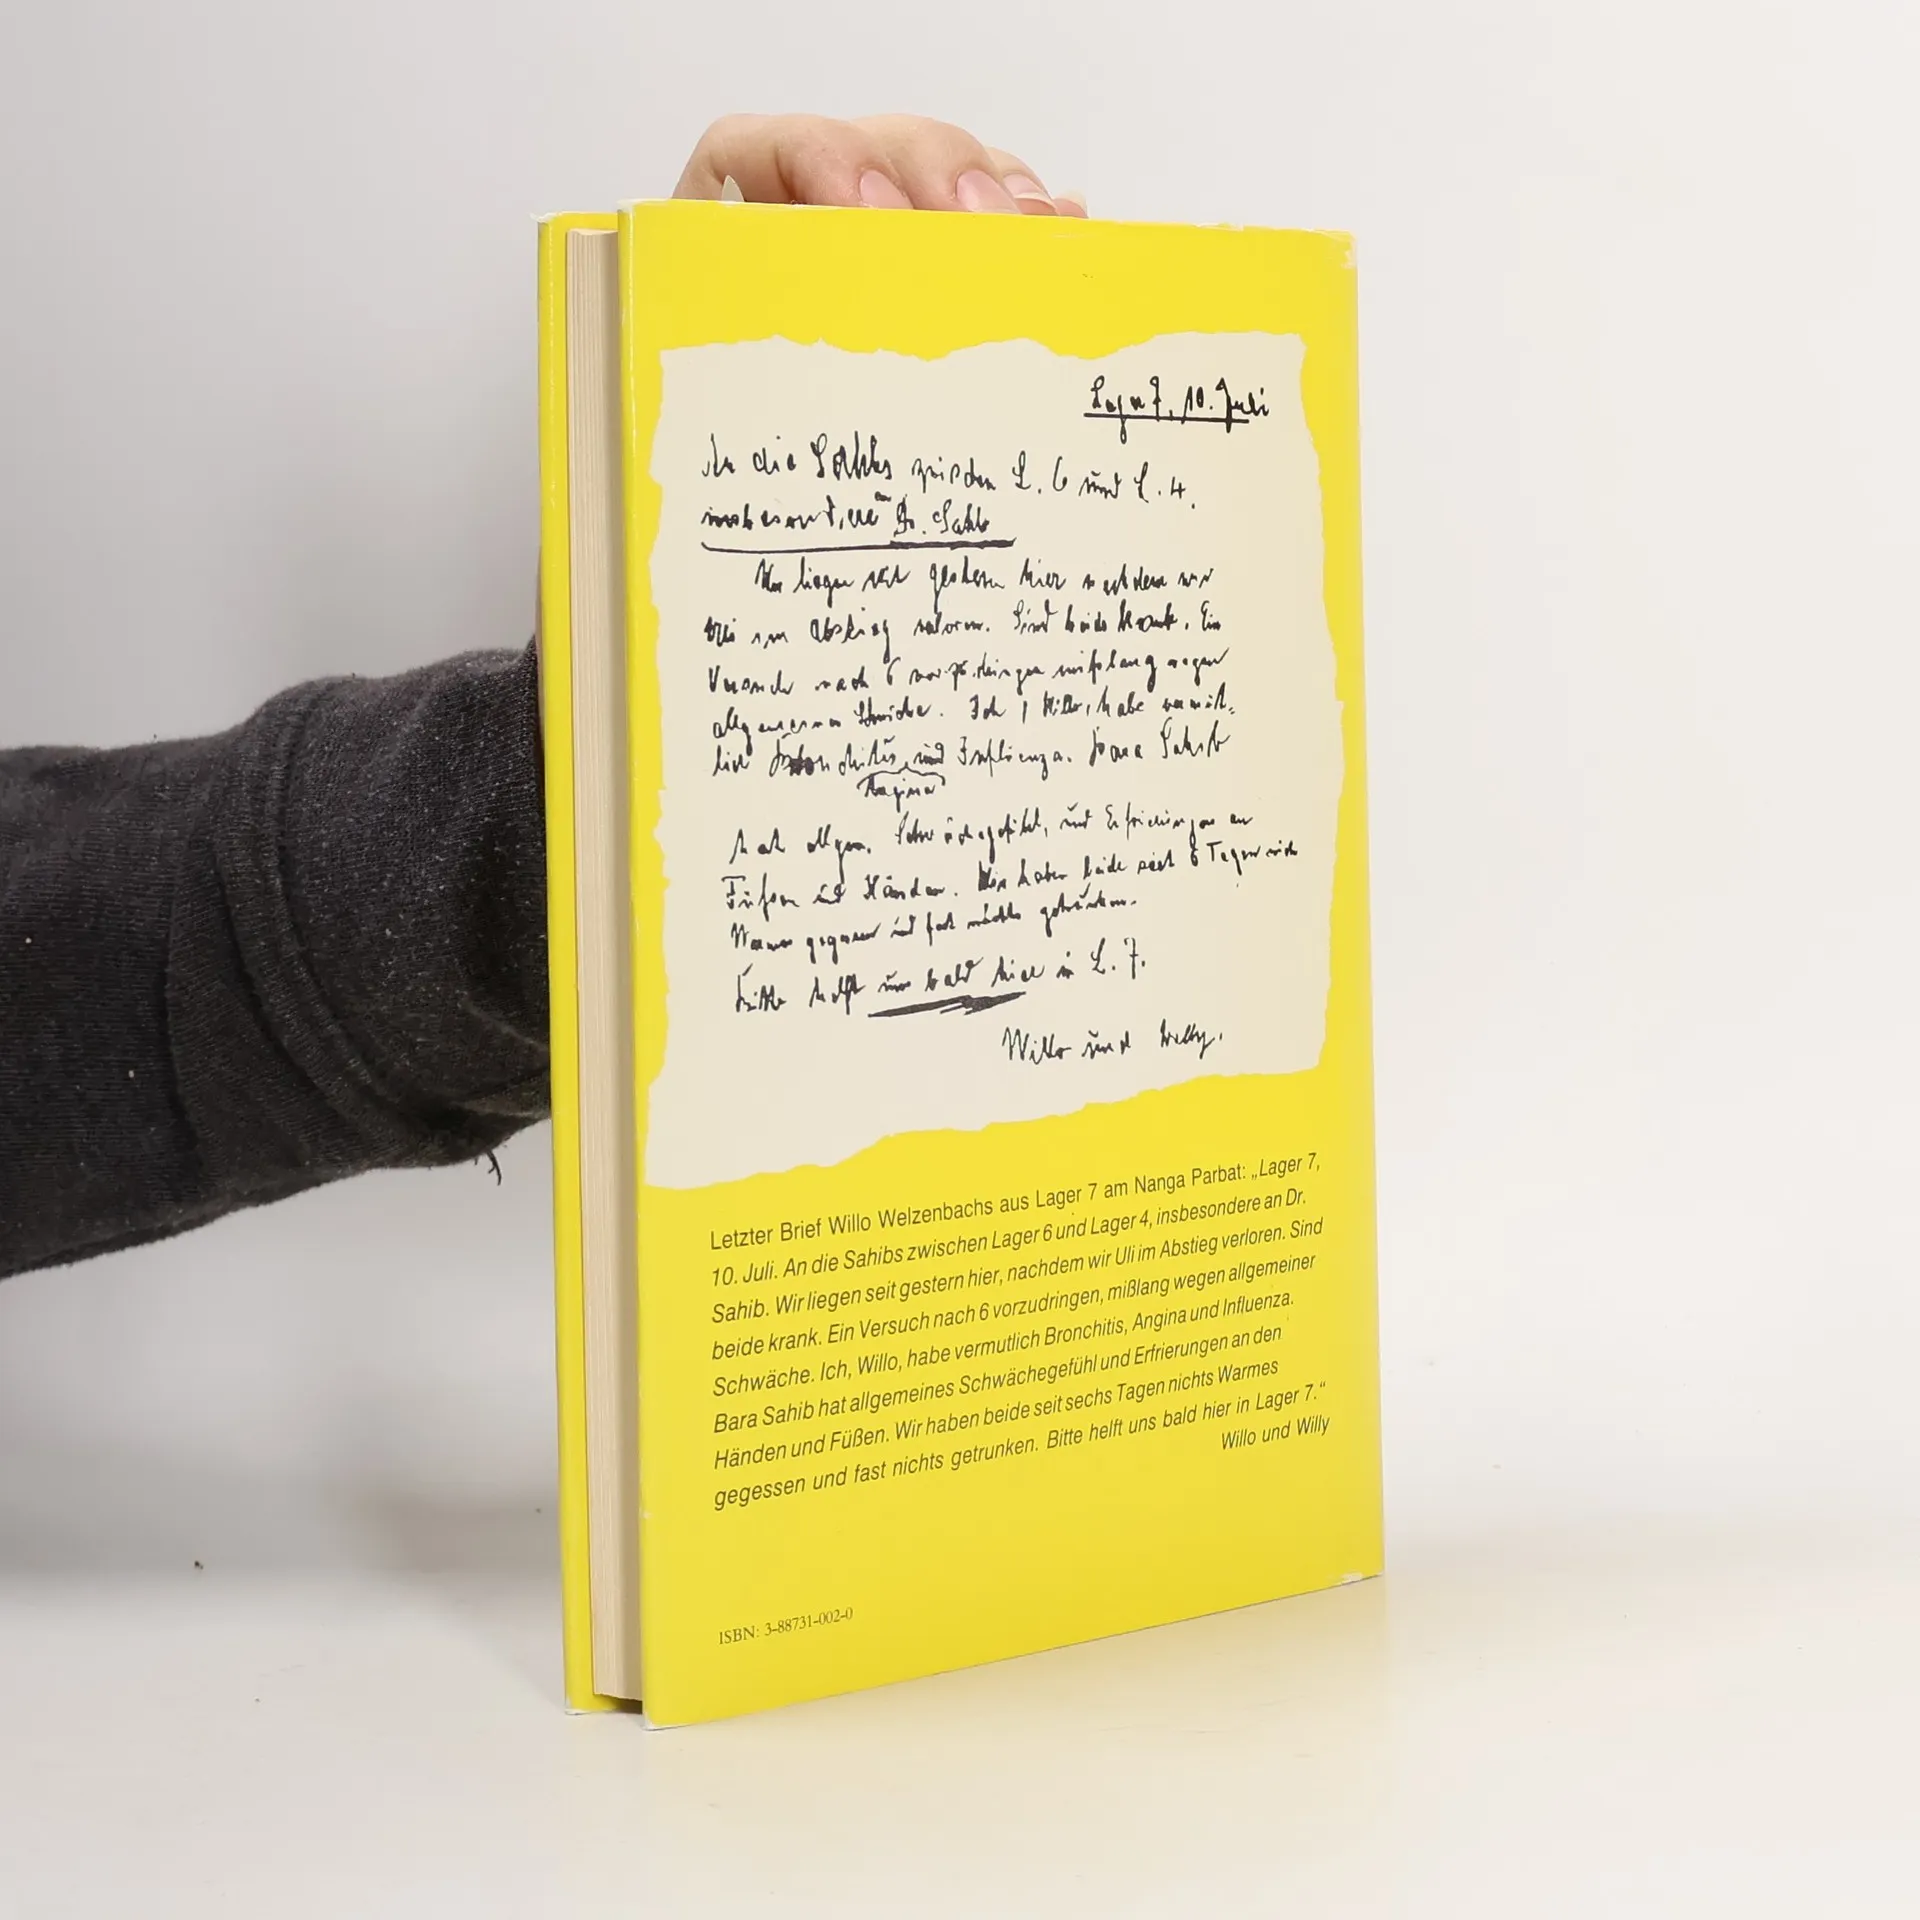 Lager 7, 10. Juli
An die Sahibs zwischen L. 6 und L. 4.
insbesondere an Dr. Sahib
Wir liegen seit gestern hier nachdem wir
Uli im Abstieg verloren. Sind beide krank. Ein
Versuch nach 6 vorzudringen mißlang wegen
allgemeiner Schwäche. Ich, Willo, habe vermut-
lich Bronchitis, und Influenza. Bara Sahib
Angina
hat allgem. Schwächegefühl, und Erfrierungen an
Füßen und Händen. Wir haben beide seit 6 Tagen nichts
Warmes gegessen und fast nichts getrunken.
Bitte helft uns bald hier in L. 7.
Willo und Willy.
Letzter Brief Willo Welzenbachs aus Lager 7 am Nanga Parbat: „Lager 7,
10. Juli. An die Sahibs zwischen Lager 6 und Lager 4, insbesondere an Dr.
Sahib. Wir liegen seit gestern hier, nachdem wir Uli im Abstieg verloren. Sind
beide krank. Ein Versuch nach 6 vorzudringen, mißlang wegen allgemeiner
Schwäche. Ich, Willo, habe vermutlich Bronchitis, Angina und Influenza.
Bara Sahib hat allgemeines Schwächegefühl und Erfrierungen an den
Händen und Füßen. Wir haben beide seit sechs Tagen nichts Warmes
gegessen und fast nichts getrunken. Bitte helft uns bald hier in Lager 7.“
Willo und Willy
ISBN: 3-88731-002-0